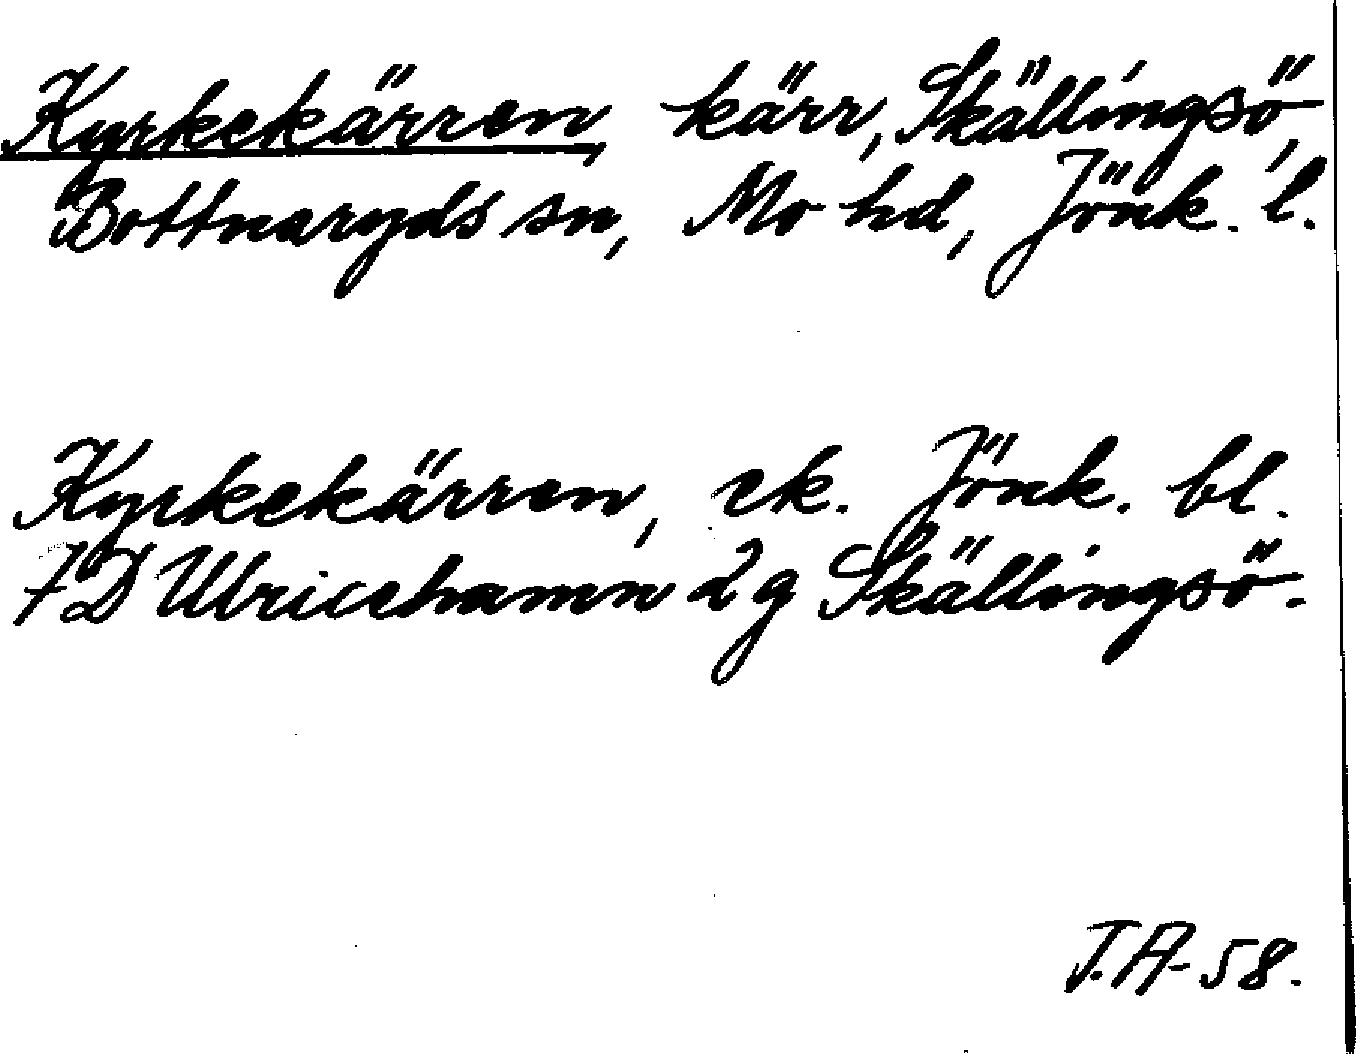 Kyrkekärren, kärr, Skällingsö,
Bottnaryds sn, Mo hd, Jönk. l.
Kyrkekärren, ek. Jönk. bl.
7D Ulricehamn 2g Skällingsö.
T.A-58.